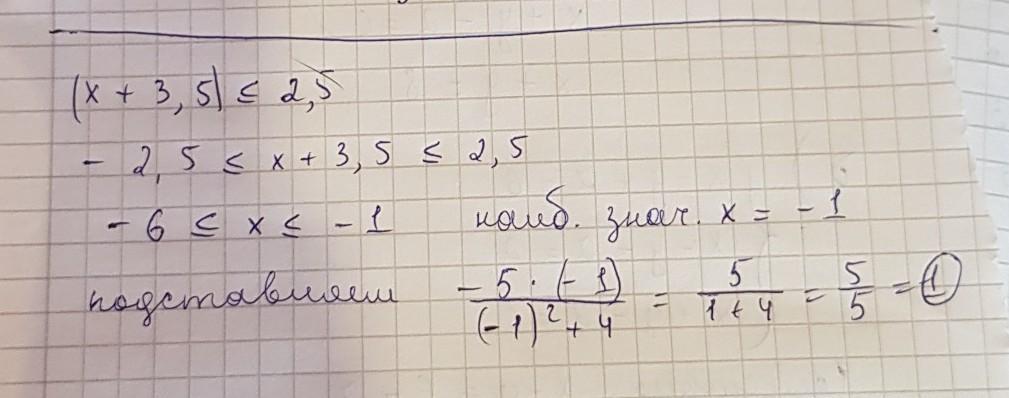 |x + 3,5| ≤ 2,5
- 2,5 ≤ x + 3,5 ≤ 2,5
- 6 ≤ x ≤ - 1 наиб. знач. x = - 1
подставляем -5 · (-1) / (-1)² + 4 = 5 / 1 + 4 = 5 / 5 = 1